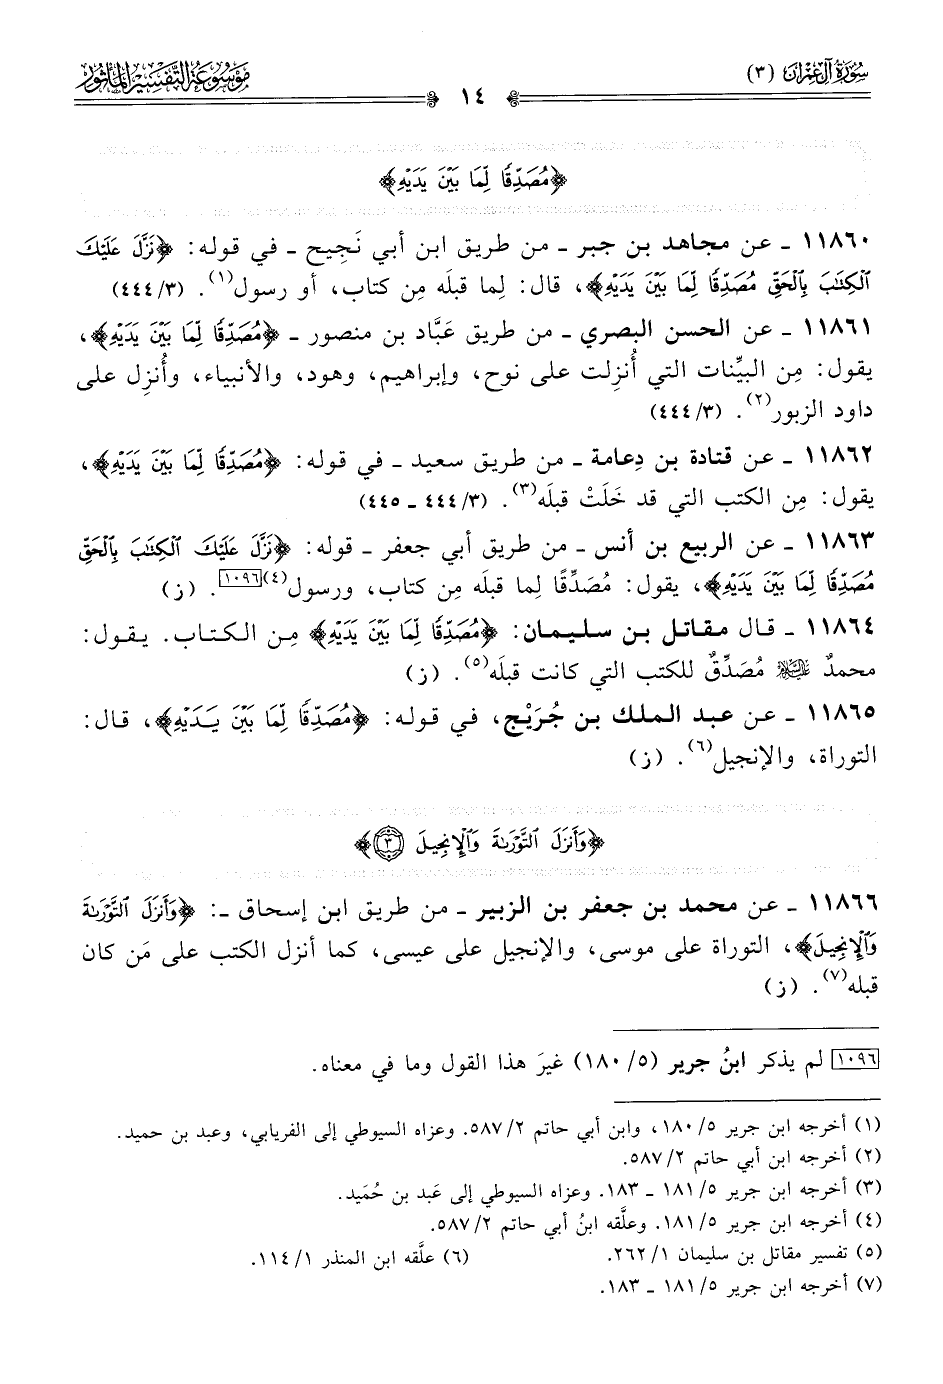 سُورَةُ آلِ عِمْرَان (٣)
١٤
مَوْسُوعَةُ التَّفْسِيرِ المَأْثُورِ
﴿مُصَدِّقًا لِّمَا بَيْنَ يَدَيْهِ﴾
١١٨٦٠ ـ عن مجاهد بن جبر ـ من طريق ابن أبي نَجيح ـ في قوله: ﴿نَزَّلَ عَلَيْكَ
ٱلْكِتَٰبَ بِٱلْحَقِّ مُصَدِّقًا لِّمَا بَيْنَ يَدَيْهِ﴾، قال: لِما قبلَه مِن كتاب، أو رسول(١). (٣/ ٤٤٤)
١١٨٦١ ـ عن الحسن البصري ـ من طريق عَبَّاد بن منصور ـ ﴿مُصَدِّقًا لِّمَا بَيْنَ يَدَيْهِ﴾،
يقول: مِن البيِّنات التي أُنزِلت على نوح، وإبراهيم، وهود، والأنبياء، وأُنزِل على
داود الزبور(٢). (٣/ ٤٤٤)
١١٨٦٢ ـ عن قتادة بن دِعامة ـ من طريق سعيد ـ في قوله: ﴿مُصَدِّقًا لِّمَا بَيْنَ يَدَيْهِ﴾،
يقول: مِن الكتب التي قد خَلَتْ قبلَه(٣). (٣/ ٤٤٤ ـ ٤٤٥)
١١٨٦٣ ـ عن الربيع بن أنس ـ من طريق أبي جعفر ـ قوله: ﴿نَزَّلَ عَلَيْكَ ٱلْكِتَٰبَ بِٱلْحَقِّ
مُصَدِّقًا لِّمَا بَيْنَ يَدَيْهِ﴾، يقول: مُصَدِّقًا لِما قبلَه مِن كتاب، ورسول(٤)[١٠٩٦]. (ز)
١١٨٦٤ ـ قال مقاتل بن سليمان: ﴿مُصَدِّقًا لِّمَا بَيْنَ يَدَيْهِ﴾ مِن الكتاب. يقول:
محمدٌ ﷺ مُصَدِّقٌ للكتب التي كانت قبلَه(٥). (ز)
١١٨٦٥ ـ عن عبد الملك بن جُرَيْج، في قوله: ﴿مُصَدِّقًا لِّمَا بَيْنَ يَدَيْهِ﴾، قال:
التوراة، والإنجيل(٦). (ز)
﴿وَأَنزَلَ ٱلتَّوْرَىٰةَ وَٱلْإِنجِيلَ ٣﴾
١١٨٦٦ ـ عن محمد بن جعفر بن الزبير ـ من طريق ابن إسحاق ـ: ﴿وَأَنزَلَ ٱلتَّوْرَىٰةَ
وَٱلْإِنجِيلَ﴾، التوراة على موسى، والإنجيل على عيسى، كما أنزل الكتب على مَن كان
قبله(٧). (ز)
[١٠٩٦] لم يذكر ابنُ جرير (٥/ ١٨٠) غيرَ هذا القول وما في معناه.
(١) أخرجه ابن جرير ٥/ ١٨٠، وابن أبي حاتم ٢/ ٥٨٧. وعزاه السيوطي إلى الفريابي، وعبد بن حميد.
(٢) أخرجه ابن أبي حاتم ٢/ ٥٨٧.
(٣) أخرجه ابن جرير ٥/ ١٨١ ـ ١٨٣. وعزاه السيوطي إلى عَبد بن حُمَيد.
(٤) أخرجه ابن جرير ٥/ ١٨١. وعلَّقه ابنُ أبي حاتم ٢/ ٥٨٧.
(٥) تفسير مقاتل بن سليمان ١/ ٢٦٢. (٦) علَّقه ابن المنذر ١/ ١١٤.
(٧) أخرجه ابن جرير ٥/ ١٨١ ـ ١٨٣.